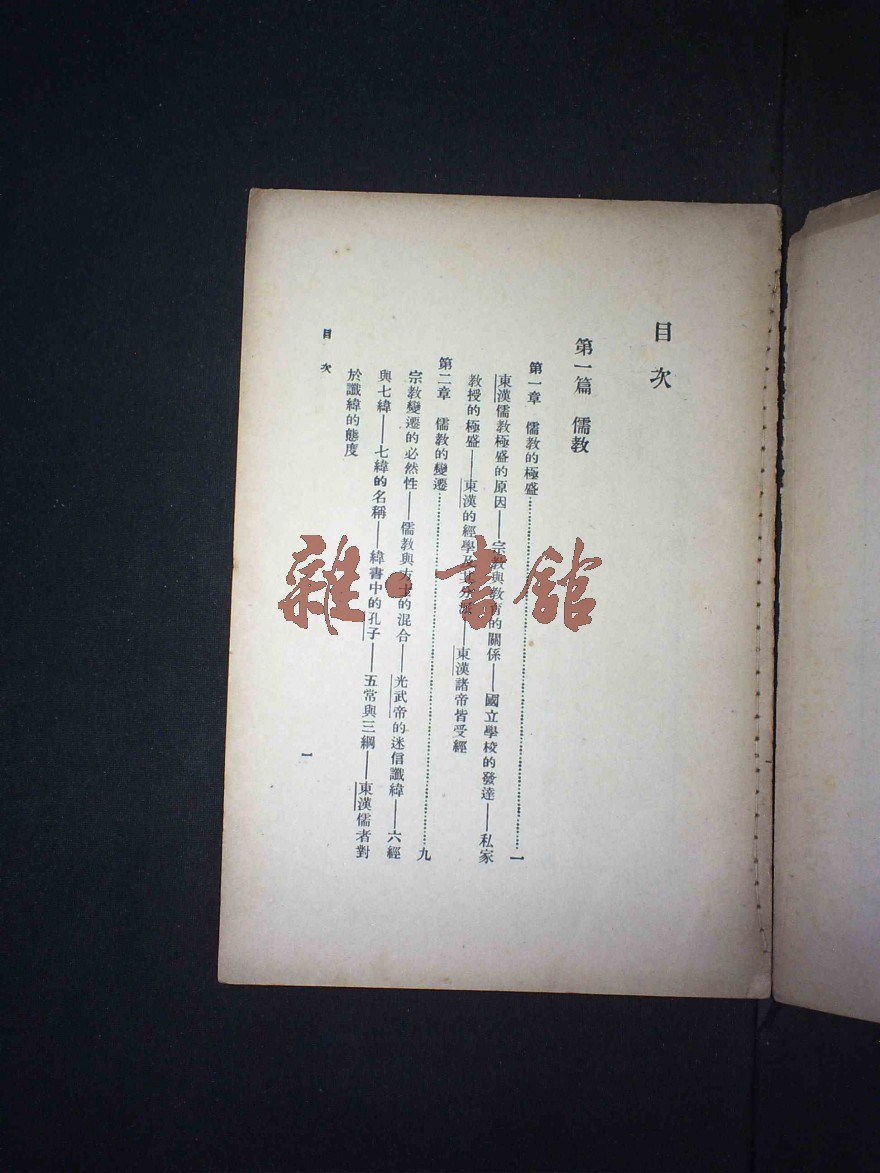 目次
第一篇 儒教
第一章 儒教的極盛……一
東漢儒教極盛的原因——宗教與教育的關係——國立學校的發達——私家
教授的極盛——東漢的經學及其分派——東漢諸帝皆受經
第二章 儒教的變遷……九
宗教變遷的必然性——儒教與方士的混合——光武帝的迷信讖緯——六經
與七緯——七緯的名稱——緯書中的孔子——五常與三綱——東漢儒者對
於讖緯的態度
目次
一
雜·書館